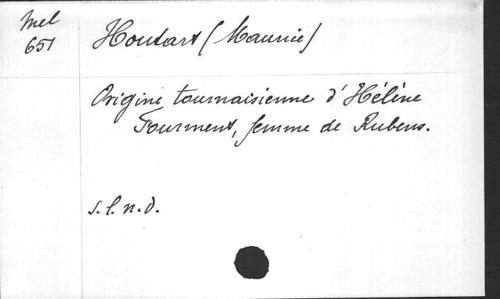 Mel
651
Houtart (Maurice)
Origine tournaisienne d'Hélène
Fourment, femme de Rubens.
s.l.n.d.